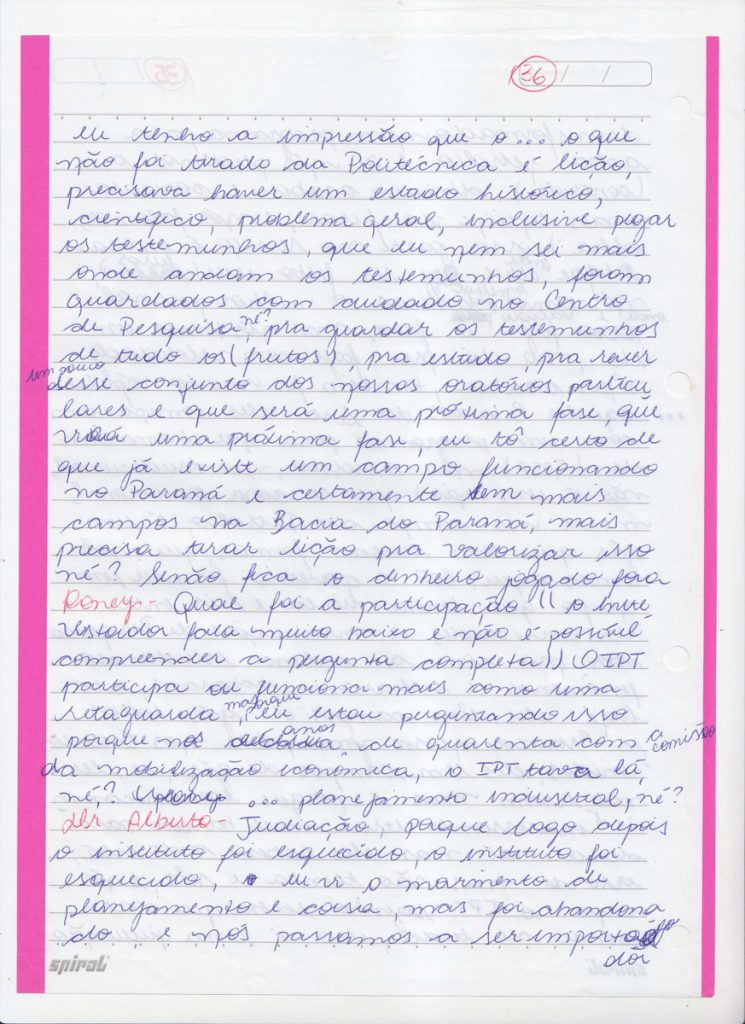 36 / /
eu tenho a impressão que o... o que
não foi tirado da Politécnica é lição,
precisava haver um estado histórico,
científico, problema geral, inclusive pegar
os testemunhos, que eu nem sei mais
onde andam os testemunhos, foram
guardados com cuidado no Centro
de Pesquisa, né? pra guardar os testemunhos
de tudo os (frutos), pra estudo, pra rever
um pouco desse conjunto dos nossos oratórios partícu
lares e que será uma próxima fase, que
virá uma próxima fase, eu tô certo de
que já existe um campo funcionando
no Paraná e certamente tem mais
campos na Bacia do Paraná, mais
precisa tirar lição pra valorizar isso
né? Senão fica o dinheiro jogado fora
Roney- Qual foi a participação (( o entre
vistador fala muito baixo e não é possível
compreender a pergunta completa)) O IPT
participa ou funciona mais como uma
retaguarda, mas porque eu estou perguntando isso
porque nos anos de quarenta com a comissão
da mobilização econômica, o IPT tava lá,
né? ... planejamento industrial, né?
Dr Alberto- Judiação, porque logo depois
o instituto foi esquecido, o instituto foi
esquecido, eu vi o marimento de
planejamento e coisa, mas foi abandona
do e nós passamos a ser
dor
spiral